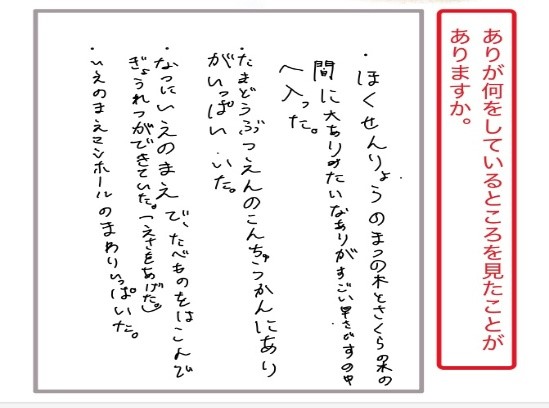 ありが何をしているところを見たことが
ありますか。
・ほくせんりょうのまつの木とさくらの木の
間に大ありみたいなありがすごい早さですの中
へ入った。
・たまどうぶつえんのこんちゅうかんにあり
がいっぱいいた。
・なつにいえのまえで、たべものをはこんで
ぎょうれつができていた。(えさをあげた)
・いえのまえマンホールのまわりいっぱいた。